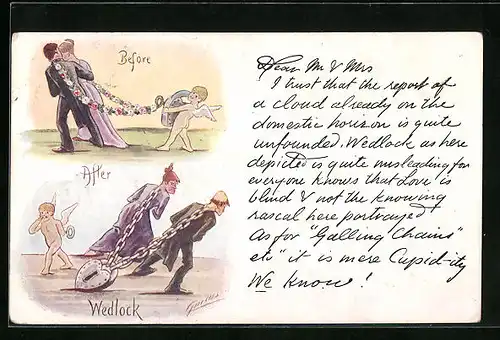 Before
After
Wedlock
Dear Mr & Mrs
I trust that the report of
a cloud already on the
domestic horizon is quite
unfounded. Wedlock as here
depicted is quite misleading for
everyone knows that Love is
blind & not the knowing
rascal here portrayed
As for "Galling Chains"
etc "it is mere Cupid-ity
We know!